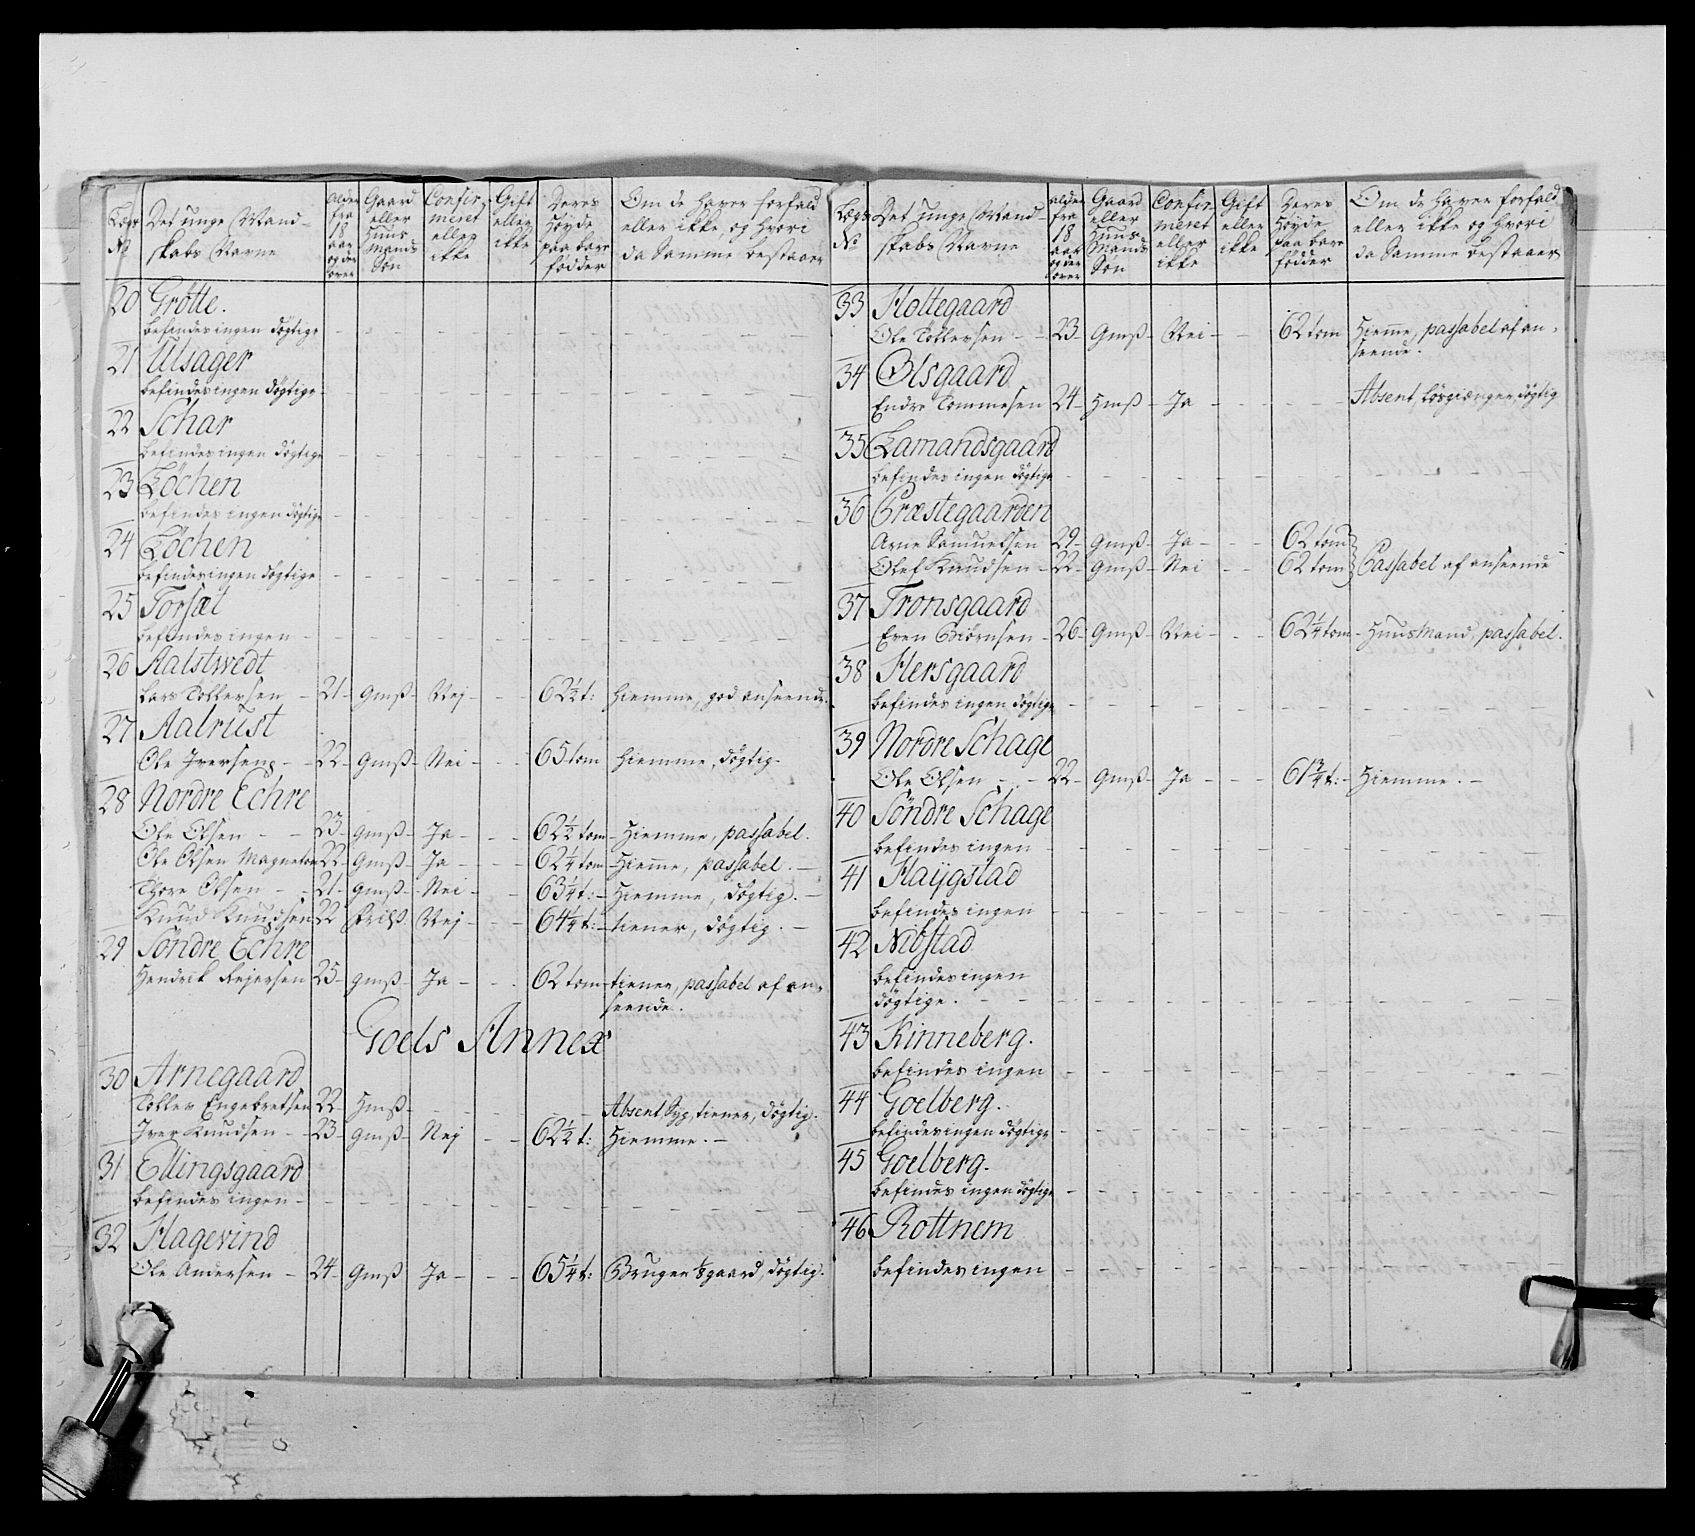 Lægs No | Det unge Mandskabs Navne | alder fra 18 aar og der over | Gaard eller Huus Mands Søn | Confirmeret eller ikke | Gift eller ikke | Deres Høyde paa bare fødder | Om de haver forfald eller ikke, og hvori da Samme bestaaer
20 Grøtte.
befindes ingen døgtige
21 Ulsager
befindes ingen døgtige
22 Schar
befindes ingen døgtige
23 Løchen
befindes ingen døgtige
24 Løchen
befindes ingen døgtige
25 Torsæt
befindes ingen
26 Aalstwedt
Lars Tollevsen 21 Gmß Nej 62 1/2 t: hiemme, god anseende.
27 Aalrust
Ole Iversen 22 Gmß Nei 65 tom hiemme, døgtig
28 Nordre Echre
Ole Olsen 23 gmß Ja 62 1/2 tom Hiemme, passabel.
Ole Olsen Magneton 22 Gmß Ja 62 1/4 tom Hieme, passabel.
Thore Olsen 21 gmß Nei 63 1/4 t: Hiemme, døgtig.
Knud Knudsen 22 Nej 64 1/4 t: tiener, døgtig.
29 Søndre Echre
Hendrik Rejersen 25 gmß Ja 62 tom tiener, passabel af an-
seende.
Goels Annex
30 Arnegaard
Tollev Engebretsen 22 Hmß Absent Syg, tiener, døgtig.
Iver Knudsen 23 gmß Nej 62 1/2 t: Hiemme.
31 Edlingsgaard
befindes ingen
32 Hagevind
Ole Andersen 24 gmß Ja 65 1/4 t: Bruger 1/8 gaard, døgtig.
Lægs No | Det Junge Mandskabs Navne | alder fra 18 aar og der over | Gaard eller Huus Mands Søn | Confirmeret eller ikke | Gift eller ikke | Deres Høyde paa bare fødder | Om de haver forfald eller ikke og hvori da Samme bestaaer
33 Holtegaard
Ole Tollevsen 23 Gmß Nei 62 tom Hieme, passabel af an-
seende.
34 Olsgaard
Endre Tommesen 24 Hmß Ja Absent, Løsgiænger, døgtig
35 Lamandsgaard
befindes ingen døgtige
36 Præstegaarden
Arne Samuelsen 29 Gmß Ja 62 tom
Olef Knudsen 22 Gmß Nei 62 tom Passabel af anseende
37 Tronsgaard
Even Biørnsen 26 Gmß Nei 62 1/4 tom Huusmand, passabel.
38 Hersgaard
befindes ingen døgtige
39 Nordre Schage
Ole Olsen 22 Gmß Ja 61 3/4 t: Hiemme.
40 Søndre Schage
befindes ingen
41 Haijgstad
befindes ingen
42 Nibstad
befindes ingen
døgtige.
43 Kinneberg.
befindes ingen
44 Goelberg.
befindes ingen døgtige
45 Goelberg.
befindes ingen døgtige
46 Rottnem
befindes ingen